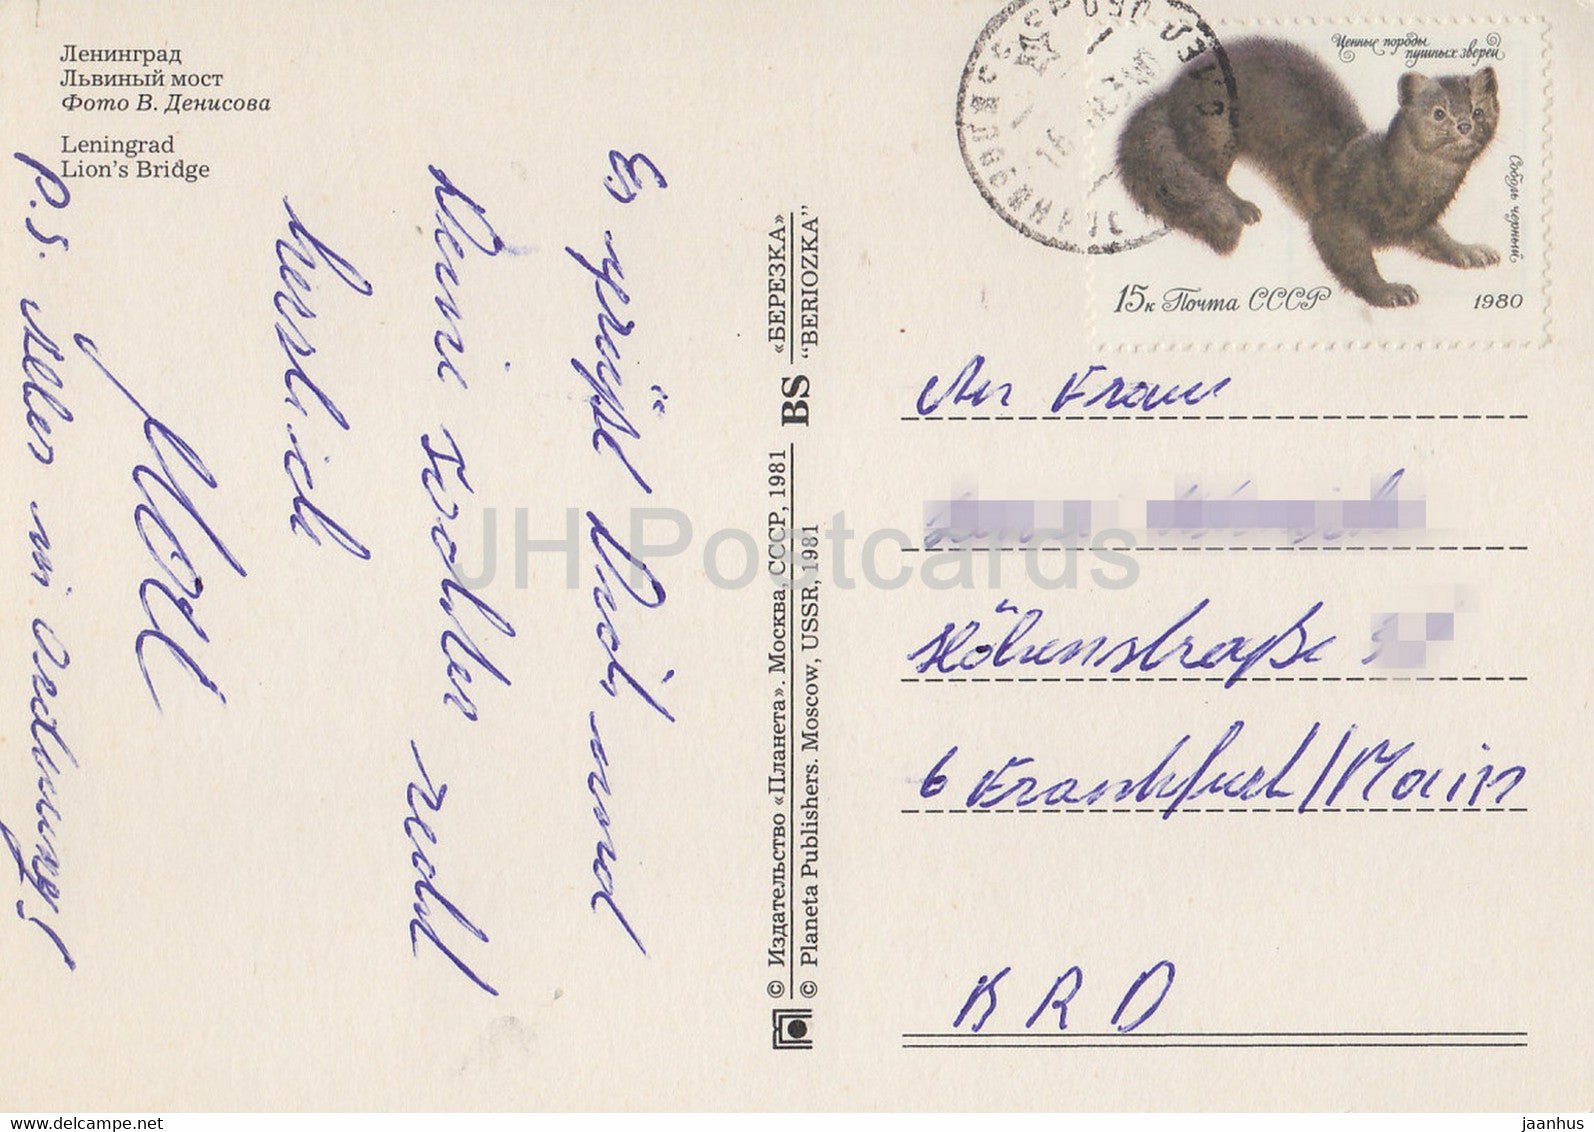 Ленинград
Львиный мост
Фото В. Денисова
Leningrad
Lion's Bridge
Es grüßt Dich und
Deine Tochter recht
herzlich
P.S. Alles in Ordnung!
© Издательство «Планета». Москва, СССР, 1981
© Planeta Publishers. Moscow, USSR, 1981
BS
«БЕРЕЗКА»
“BERIOZKA”
Ценные породы
пушных зверей
Соболь черный
15к Почта СССР 1980
An Frau
Höhenstraße
6 Frankfurt/Main
BRD
JH Postcards
jaanhus